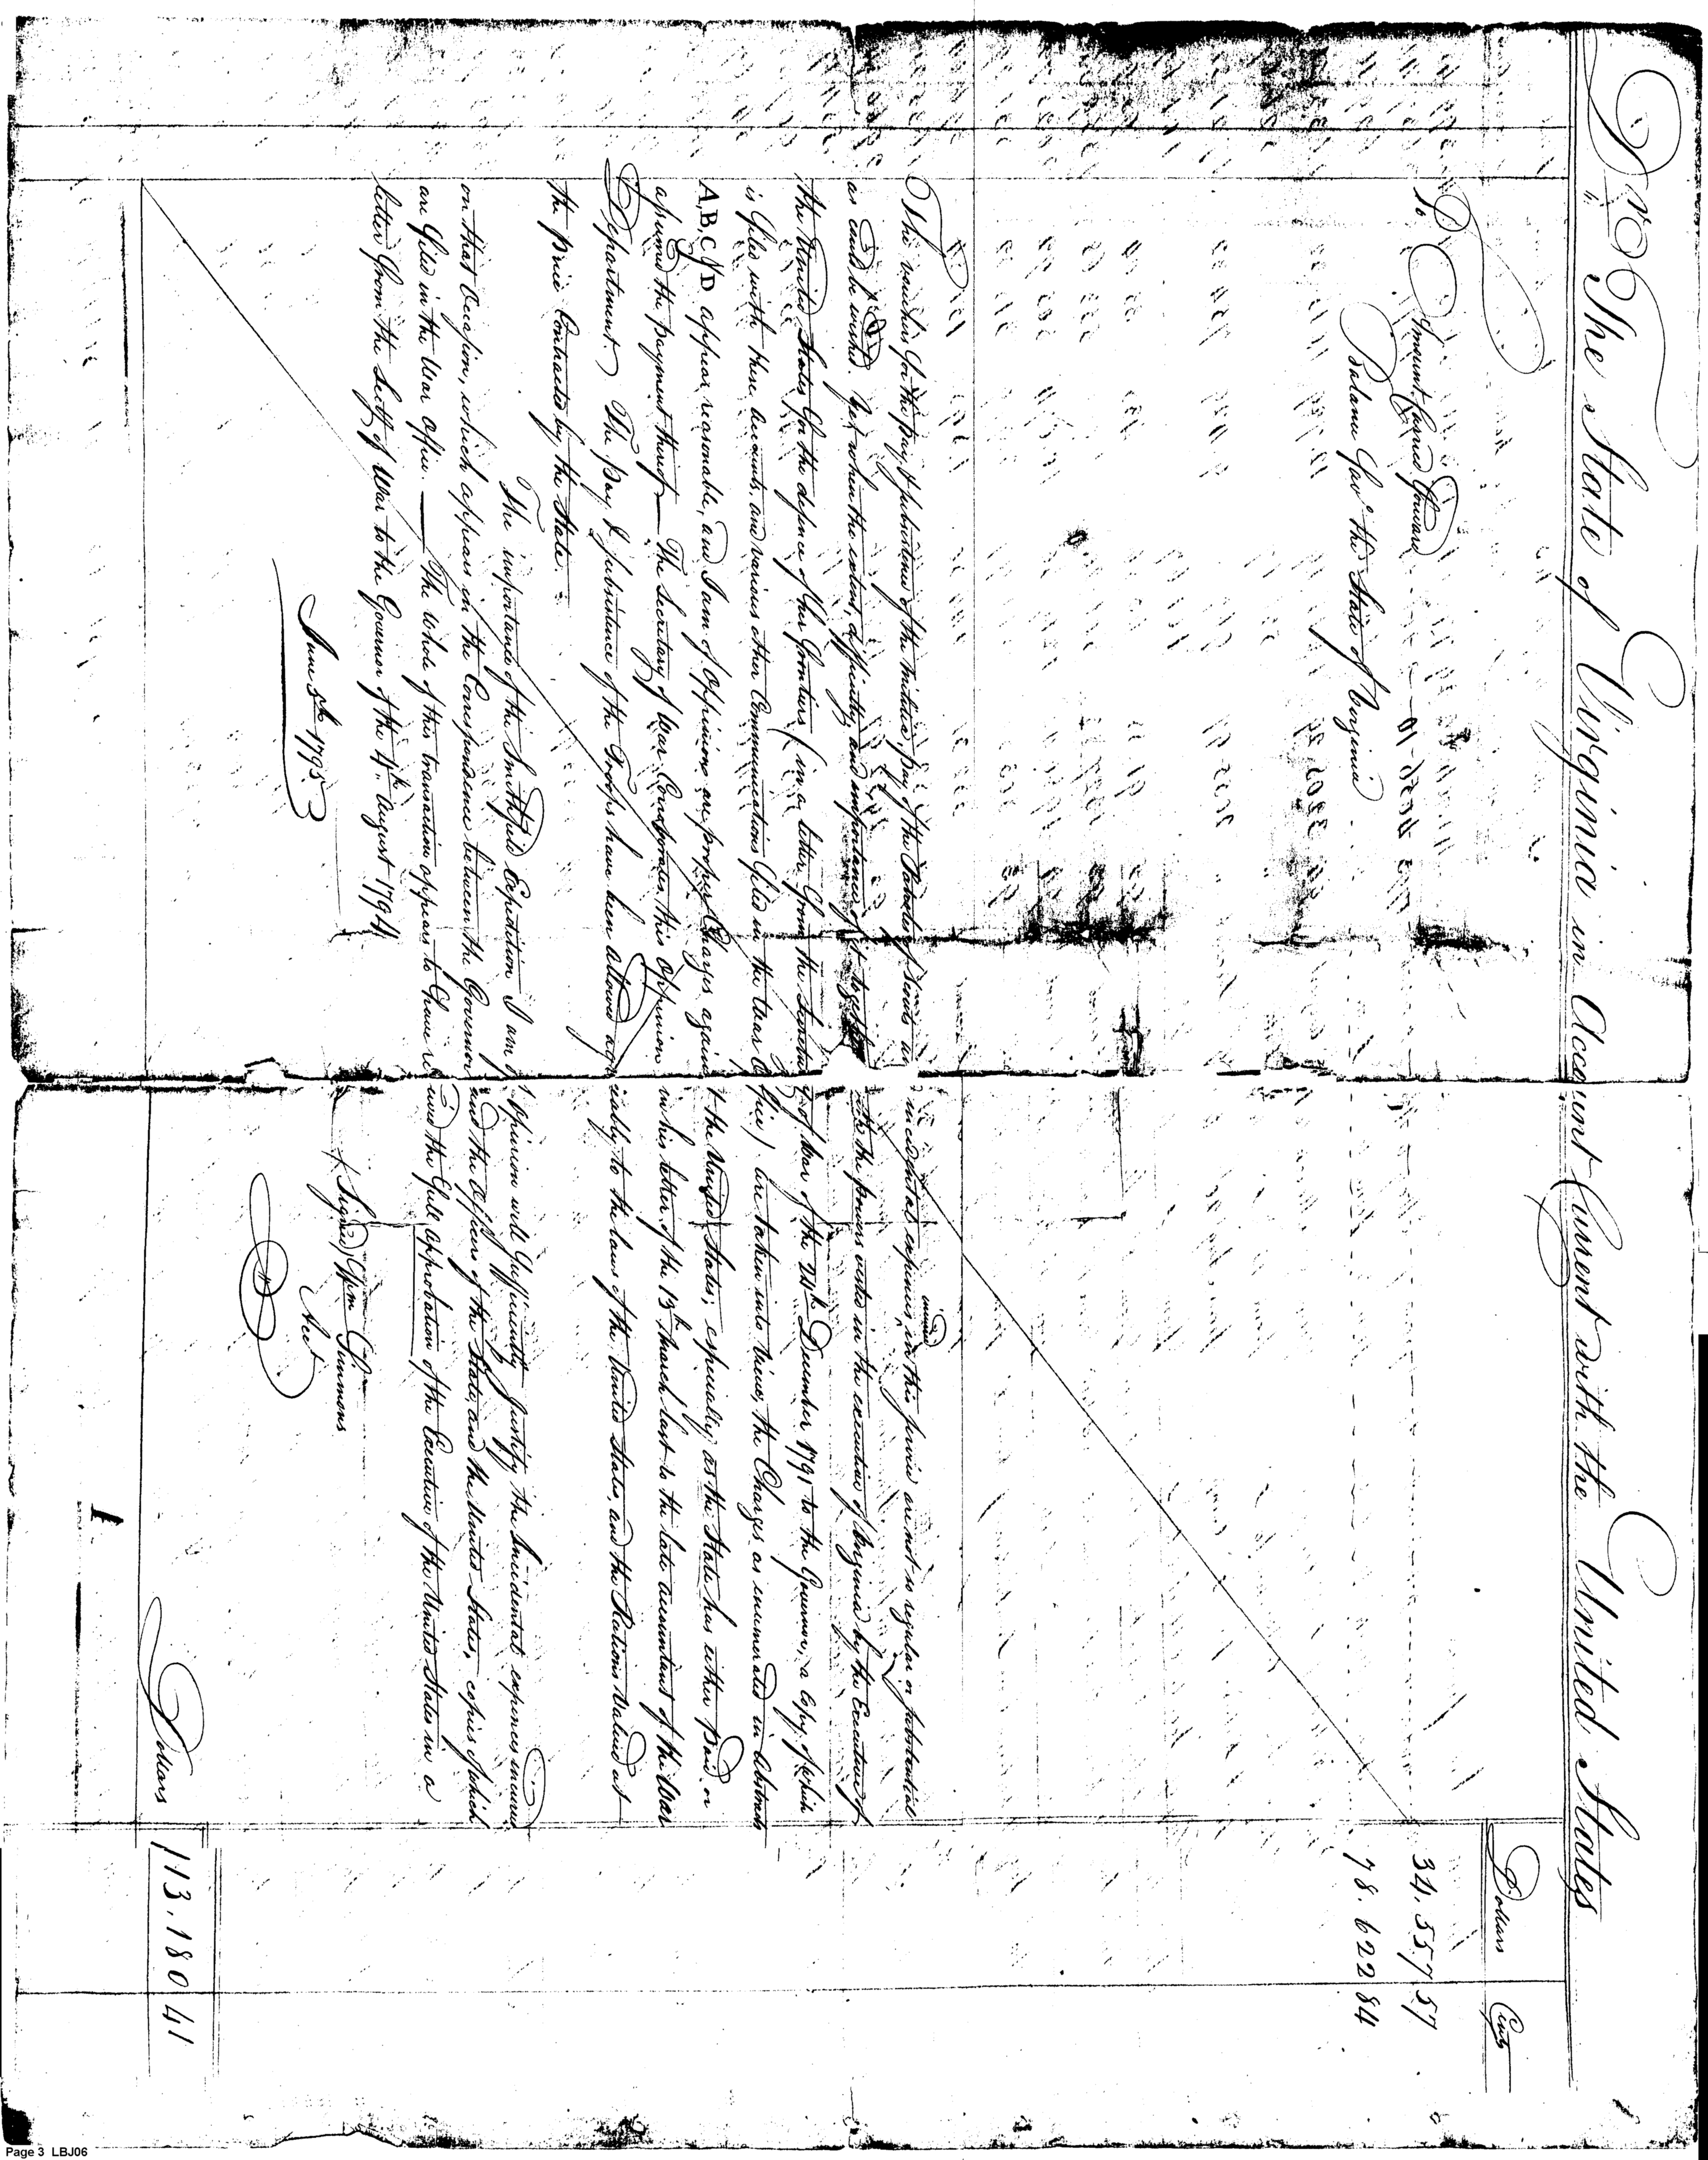 Dr The State of Virginia in Account Current with the United States
Dollars Cents
To Amount Carried forward 34.557 57
Balance for the State of Virginia 78.622 84
The vouchers for the Pay & Subsistence of the Militia, pay of the Scouts and incidental expences incurred in this service are not so regular or substantial
as could be wished. Yet when the extent, difficulty and importance of it together with the powers vested in the executive of Virginia by the Executive of
the United States for the defence of her frontiers (in a letter from the Secretary of War of the 24th December 1791 to the Governor, a Copy of which
is filed with these accounts, and various other Communications filed in the War Office) are taken into view, the Charges as enumerated in Abstracts
A, B, C & D appear reasonable, and I am of Oppinion are proper Charges against the United States; especially as the State has either Paid or
assumed the payment thereof — The Secretary of War Corroborates this Oppinion in his letter of the 13th March last to the late accountant of the War
Department. The Pay & Subsistence of the Troops have been allowed agreeably to the laws of the United States, and the Rations Valued at
the price Contracted by the State.
The importance of the Smithfield Expedition I am of Opinion will sufficiently justify the Incidental expences incurred
on that Occasion, which appears in the Correspondence between the Governor and the Officers of the State, and the United States, copies of which
are filed in the War Office. — The whole of this transaction appears to have received the full approbation of the Executive of the United States in a
letter from the Secty of War to the Governor of the 4th August 1794
(Signed) Wm Simmons
June 5th 1795 Acct
Dollars 113.180 41
1
Page 3 LBJ06